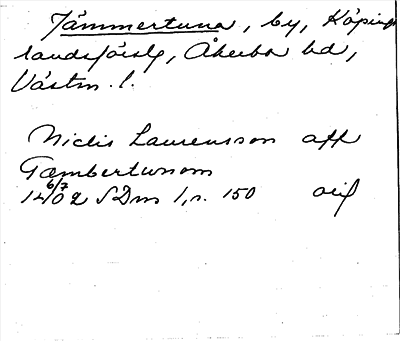 Tämmertuna, by, Köpings
landsförs?, Åkerbo hd,
Västm. l.
Niclis Laurensson aff
Tæmbertunom
14 6/7 02 SDns 1, s. 150 orig